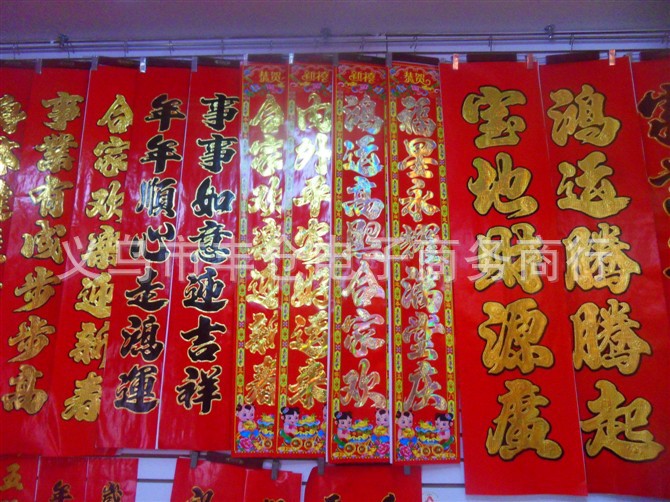 鸿运腾腾起
宝地财源广
恭贺
福星永耀满堂庆
新禧
鸿运高照合家欢
新禧
内外平安好运来
恭贺
合家欢乐迎新春
事事如意迎吉祥
年年顺心走鸿運
合家欢乐迎新春
事业有成步步高
义乌市 电子商务商行
五
年